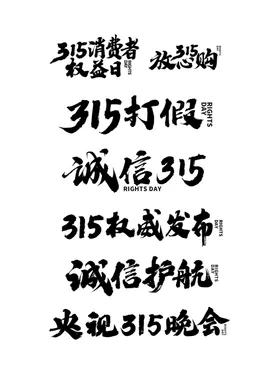 315消费者
权益日
RIGHTS DAY
315
放心购
315打假
RIGHTS DAY
诚信315
RIGHTS DAY
315权威发布
RIGHTS DAY
诚信护航
RIGHTS DAY
央视315晚会